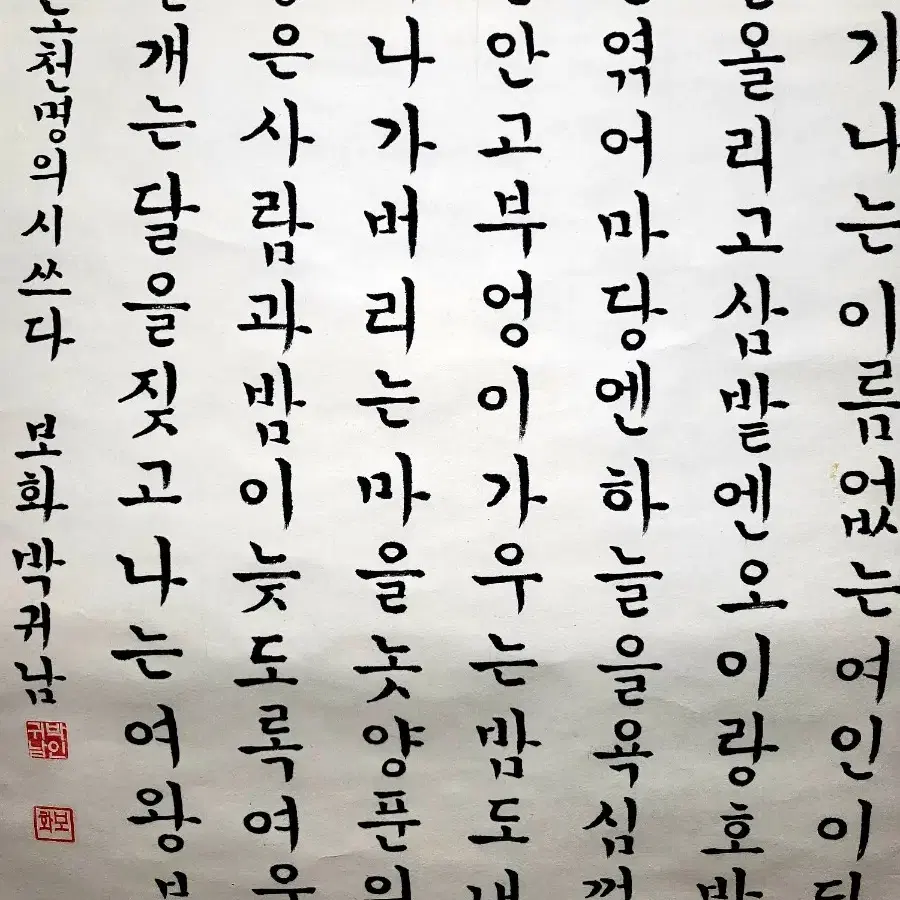 기나는이름없는여인이
올리고삼밭엔오이랑호박
엮어마당엔하늘을욕심껏
안고부엉이가우는밤도내
나가버리는마을놋양푼의
은사람과밤이늦도록여우
개는달을짖고나는여왕보
노천명의시쓰다 보화 박귀남
박인귀남
보화